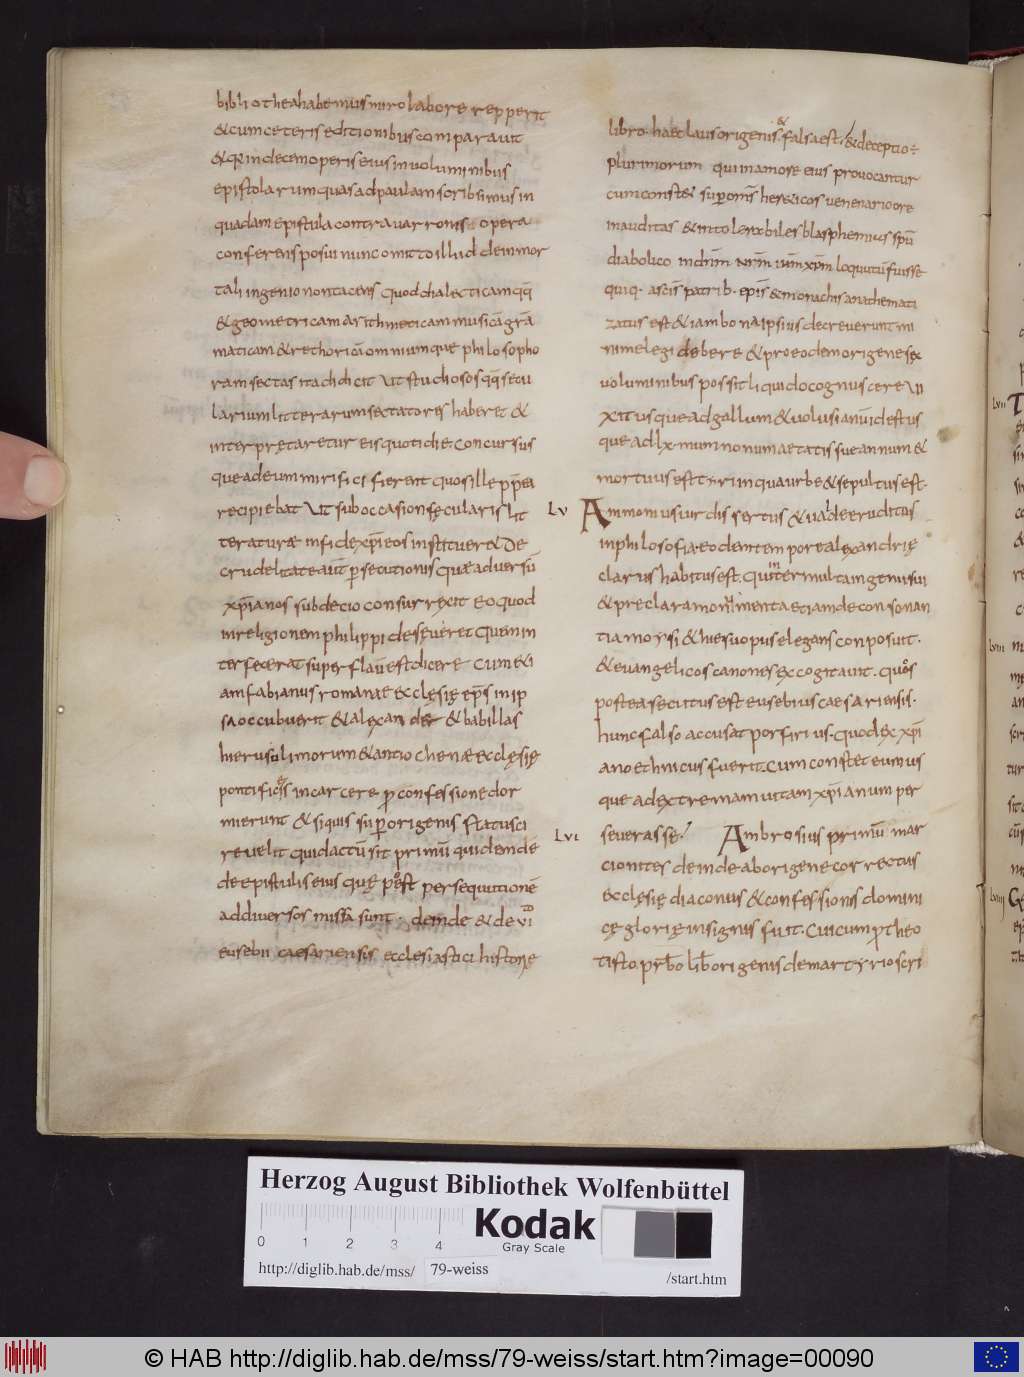 bibliotheahabemus miro labore repperit
&cumceteris editionibus comparavit
&qƺ indecemoperis eius involuminibus
epistolarum quas adpaulam scribsimus in
quadam epistula contra varronis opera
conferens posui nunc omitto illud deinmor
tali ingenio non tacens quod dialecticam qq̄
&geometricam arithmeticam musicā grā
maticam &rethoricā omniumque philosopho
ram sectas ita didicit ut studiosos qq̄ secu
larium litterarum sectatores haberet &
interpretaretur eis quotidie. Concursus
que adeum mirifici fierent quos ille p̄p̄ea
recipiebat ut sub occasion sęcularis lit
teraturae infide xp̄i eos institueret De
crudelitate aut̄ persecutionis quae adversū
xp̄ianos sub decio consurrexit eo quod
inreligionem philippi deseveret quem in
terfecerat superflūū est dicere cum eti
am fabianus romanae ecclęsię ep̄s inip
sa occubuerit &alexander &babillas
hierusolimorum &antiochenae ecclęsię
pontifices in carcere p confessione dor
mierunt &siquis super origenis statu sci
re velit quid actū sit primū quidem de
de epistulis eius quę post persequutionē
ad diversos missa sunt. deinde &de vi
eusebii caesariensis ecclesiastici historię
libro. haec laus origenis & falsa est. &deceptio÷
plurimorum qui in amore eius provocantur
cum constet sup om̄s hereticos venenario ore
inauditas &intolerabiles blasphemius spū
diabolico in dn̄m nr̄m ihm xp̄m loquutū fuisse
quiq. a scis patrib. ep̄is &monachis anathemati
zatus est &iam bona ipsius decreverunt mi
nime legi debere &pro eodem origene sex
voluminibus possit liquido cognuscere vi
xit usque ad gallum &volusianū id est us
que ad lxmum nonum aetatis sue annum &
mortuus est tyri in qua urbe &sepultus est.
LV Ammonius vir disertus &valde eruditus
in philosofia eodem tempore alexandrię
clarus habitus est. qui inter multa ingenii sui
&preclara monimenta etiam de consonan
tia moysi &hiesu opus elegans conposuit.
&evangelicos canones excogitavit. quos
postea secutus est eusebius caesariensis.
hunc falso accusat porfirius. quod ex xp̄i
ano ethnicus fuerit. cum constet eum us
que ad extremam vitam xp̄ianum per
severasse!
LVI Ambrosius primū mar
cionites deinde ab origene correctus
ecclęsię diaconus &confessionis domini
cę glorię insignis fuit. Cui cum p theo
tisto prb̄o lib̄ origenis de martyrio scri
Lvii
Lviii
Lviiij
Herzog August Bibliothek Wolfenbüttel
Kodak
Gray Scale
0 1 2 3 4
http://diglib.hab.de/mss/ 79-weiss /start.htm
© HAB http://diglib.hab.de/mss/79-weiss/start.htm?image=00090